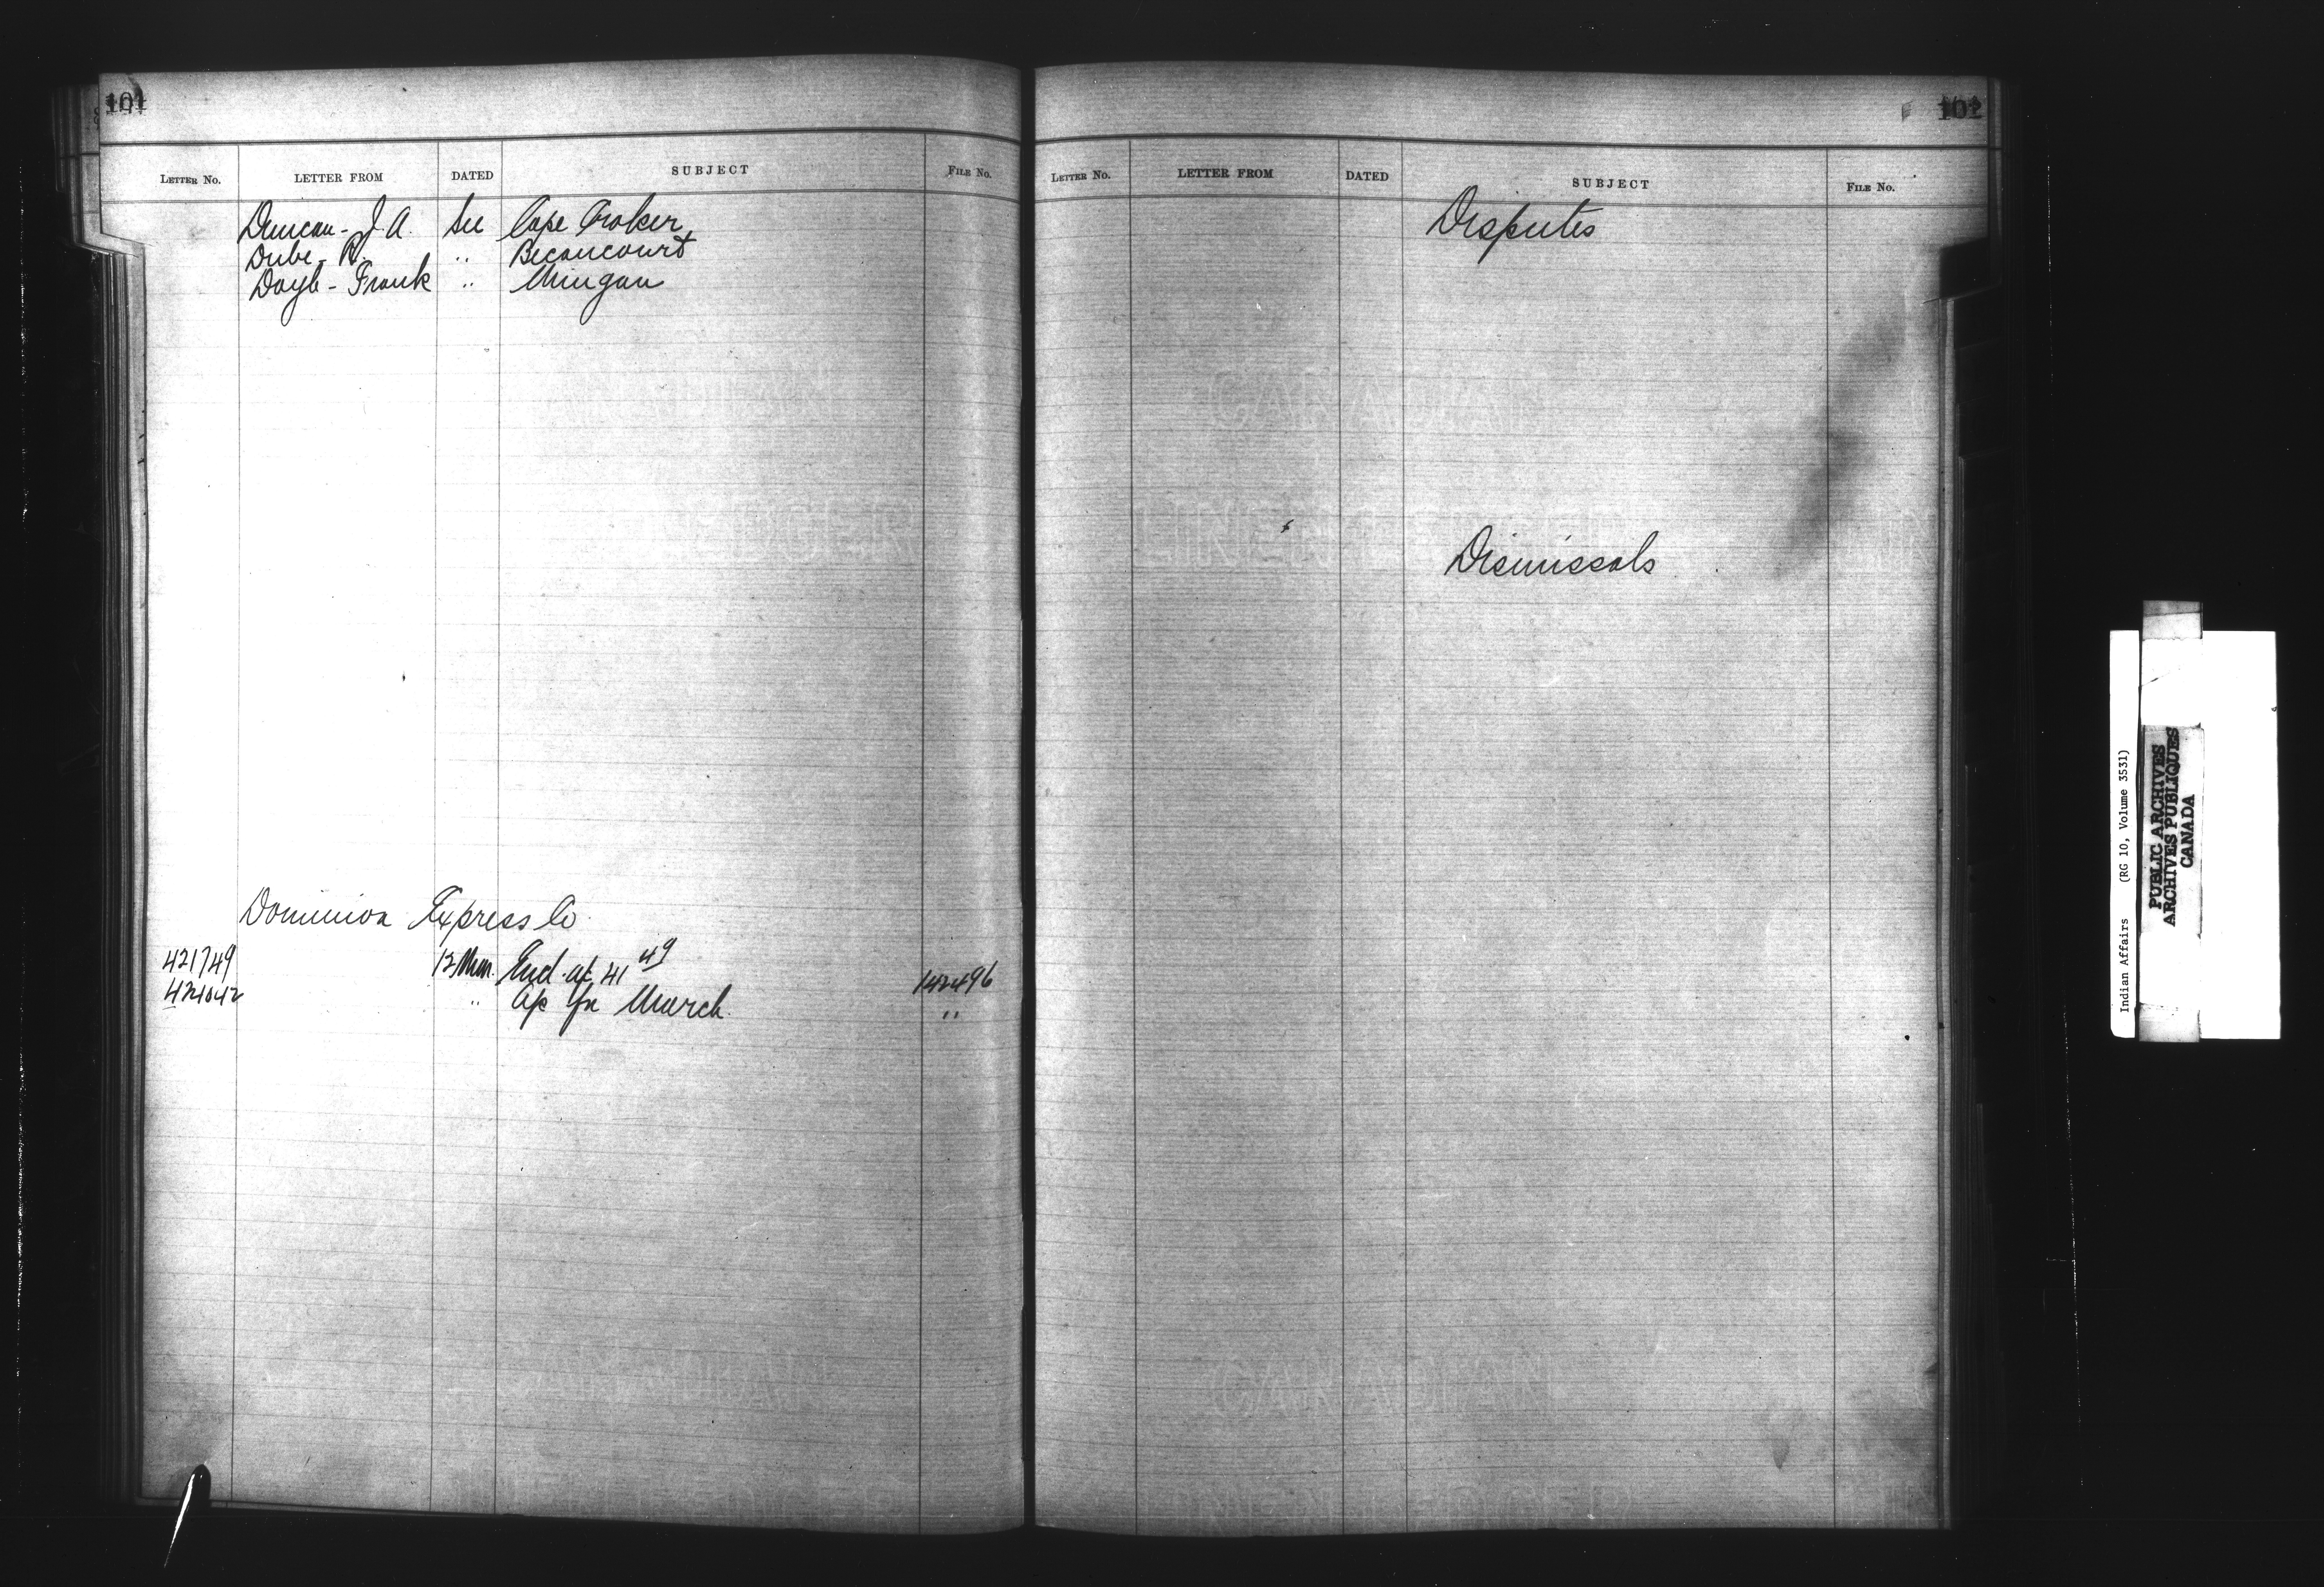 101
LETTER No. LETTER FROM DATED SUBJECT FILE No.
Duncan - J. A. See Cape Croker
Dube - R. " Becancourt
Doyle - Frank " Mingan
Dominion Express Co.
421749 12 Encl. a/c 41 49 142496
421042 " a/c for March "
102
LETTER No. LETTER FROM DATED SUBJECT FILE No.
Disputes
Dismissals
CANADIAN
LINEN LEDGER
Indian Affairs (RG 10, Volume 3531)
PUBLIC ARCHIVES
ARCHIVES PUBLIQUES
CANADA